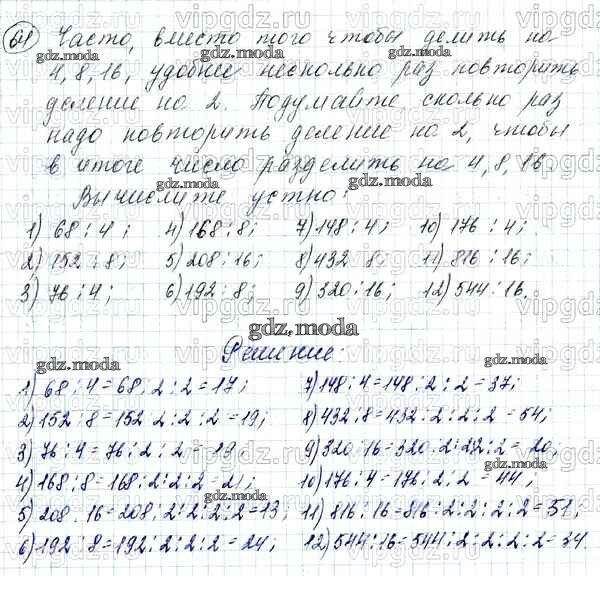 64 Часто, вместо того чтобы делить на
4, 8, 16, удобнее несколько раз повторить
деление на 2. Подумайте, сколько раз
надо повторить деление на 2, чтобы
в итоге число разделить на 4, 8, 16.
Вычислите устно:
1) 68 : 4; 4) 168 : 8; 7) 148 : 4; 10) 176 : 4;
2) 152 : 8; 5) 208 : 16; 8) 432 : 8; 11) 816 : 16;
3) 76 : 4; 6) 192 : 8; 9) 320 : 16; 12) 544 : 16.
gdz.moda
Решение:
1) 68 : 4 = 68 : 2 : 2 = 17; 7) 148 : 4 = 148 : 2 : 2 = 37;
2) 152 : 8 = 152 : 2 : 2 : 2 = 19; 8) 432 : 8 = 432 : 2 : 2 : 2 = 54;
3) 76 : 4 = 76 : 2 : 2 = 19 9) 320 : 16 = 320 : 2 : 2 : 2 : 2 = 20;
4) 168 : 8 = 168 : 2 : 2 : 2 = 21; 10) 176 : 4 = 176 : 2 : 2 = 44;
5) 208 : 16 = 208 : 2 : 2 : 2 : 2 = 13; 11) 816 : 16 = 816 : 2 : 2 : 2 : 2 = 51;
6) 192 : 8 = 192 : 2 : 2 : 2 = 24; 12) 544 : 16 = 544 : 2 : 2 : 2 : 2 = 34.